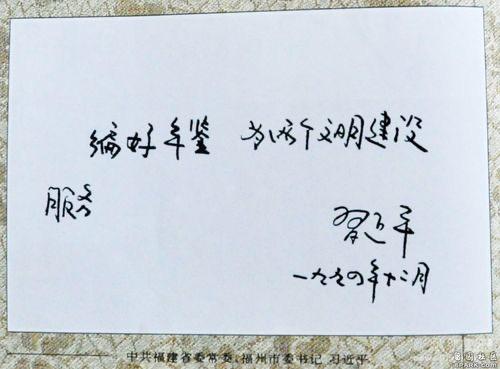 编好年鉴 为两个文明建设
服务
习近平
一九九四年十二月
中共福建省委常委、福州市委书记 习近平